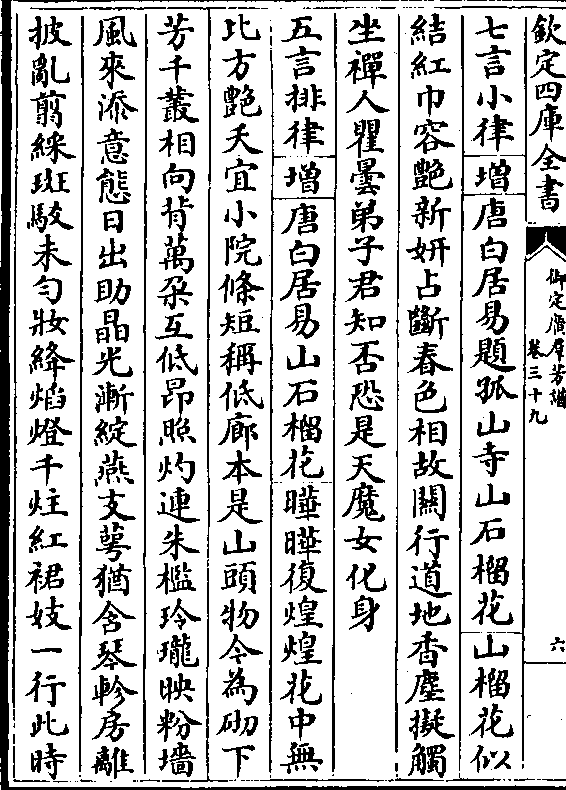 欽定四庫全書
御定廣羣芳譜
卷三十九
六
七言小律增唐白居易題孤山寺山石榴花山榴花似
結紅巾容艷新妍占斷春色相故關行道地香塵擬觸
坐禪人瞿曇弟子君知否恐是天魔女化身
五言排律增唐白居易山石榴花曄曄復煌煌花中無
比方艷夭宜小院條短稱低廊本是山頭物今為砌下
芳千叢相向背萬朶互低昂照灼連朱檻玲瓏映粉墻
風來添意態日出助晶光漸綻燕支萼猶含琴軫房離
披亂翦綵斑駮未勻妝絳焰燈千炷紅裙妓一行此時